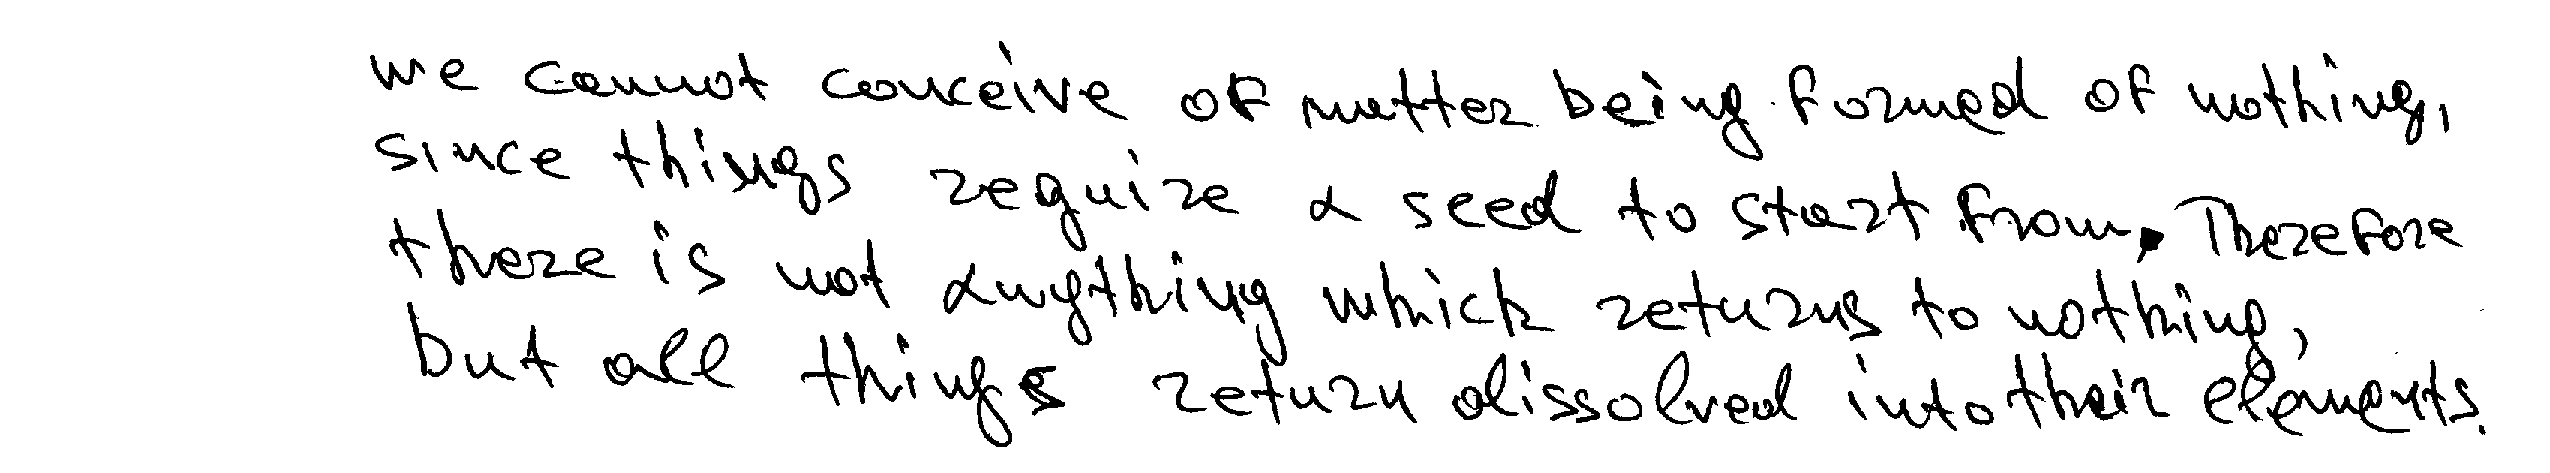 we cannot conceive of matter being formed of nothing,
since things require a seed to start from. Therefore
there is not anything which returns to nothing,
but all things return dissolved into their elements.